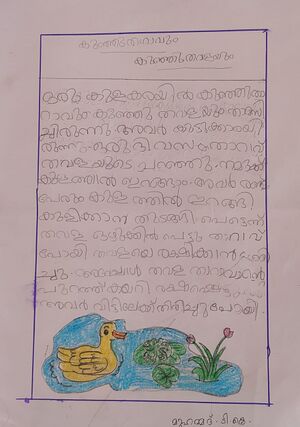 കുഞ്ഞിതാറാവും
കുഞ്ഞുതവളയും
ഒരു കുളകരയിൽ കുഞ്ഞിതാ
റാവും കുഞ്ഞു തവളയും താമസി
ച്ചിരുന്നു അവർ കൂട്ടുകാരായി
രുന്നു ഒരു ദിവസം താറാവ്
തവളയുടെ പറഞ്ഞു നമുക്ക്
കുളത്തിൽ ഇറങ്ങാം അവർ രണ്ടു
പേരും കുളത്തിൽ ഇറങ്ങി
കുളിക്കാൻ തുടങ്ങി പെട്ടെന്ന്
തവള ഒഴുക്കിൽ പെട്ടു താറാവ്
പോയി തവളയെ രക്ഷിക്കാൻ
ച്ചു തവള താറാവിന്റെ
പുറത്ത് കയറി
അവർ വീട്ടിലേയ്ക്ക് തിരിച്ചുപോയി.
മുഹമ്മദ്. ടി. കെ.